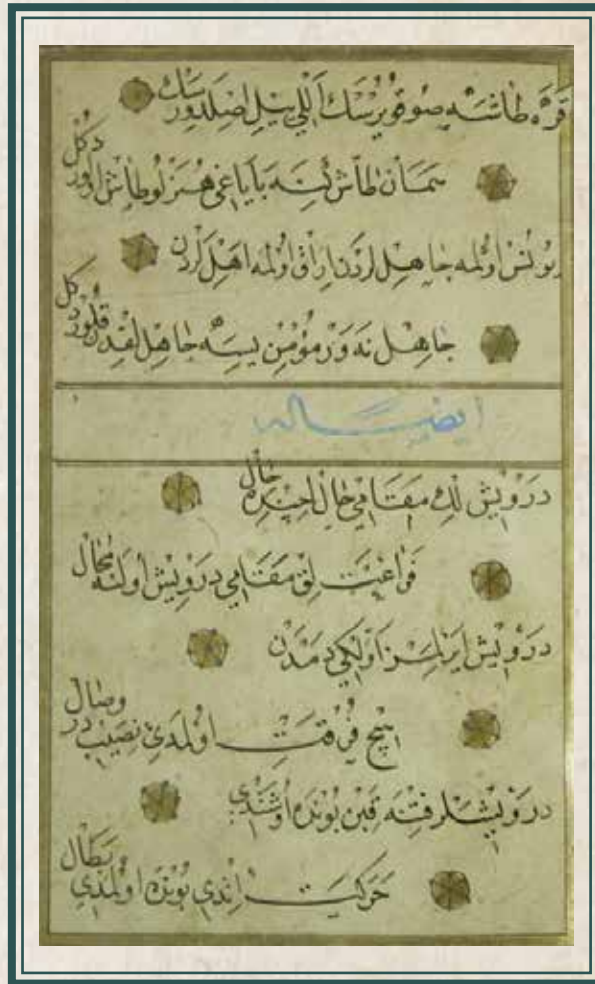 قره طاشه صو قویرسك اللی ییل اصلدورسك
همان طاش ینه بایاغی هنرلو طاش اولور دكل
یوز اولمه جاهللردن ایراق اولمه اهللردن
جاهل نه وور مؤمن یسه جاهللقدن قلور دكل
ایضا له
درویش لك مقامی حال ایچره حال
فراغت لق مقامی درویش اولنه محال
درویش ایرلمز اولكی دمدن
هیچ فرقت اولمدی نصیب در وصال
درویشلر فتنه قپن بونده اوشندی
حركت اندی بونده اولمدی بطال